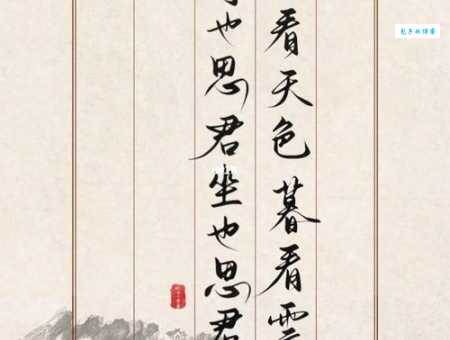 看天色暮看雲
也思君坐也思君